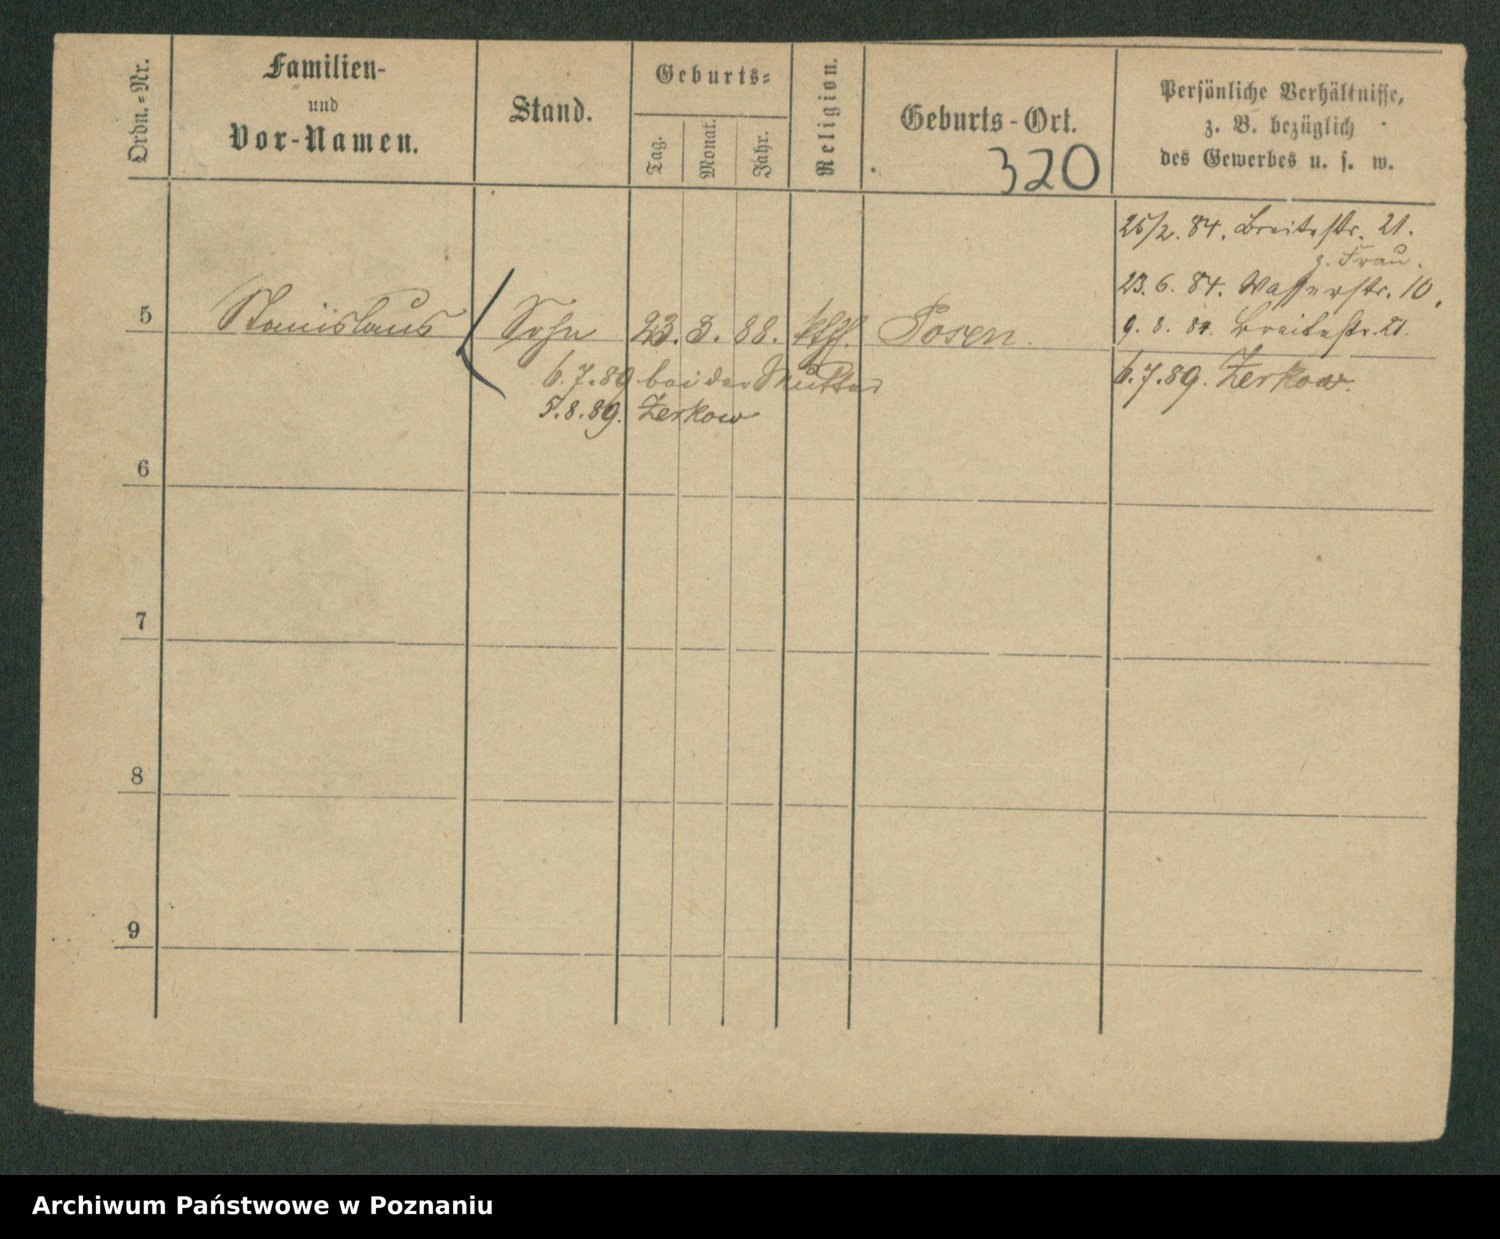 Ordn.=Nr.
Familien-
und
Vor-Namen.
Stand.
Geburts=
Tag.
Monat.
Jahr.
Religion.
Geburts-Ort.
320
Persönliche Verhältnisse,
z. B. bezüglich
des Gewerbes u. s. w.
25/2. 84. Breitestr. 21.
z. Frau.
23. 6. 84. Wasserstr. 10.
9. 8. 84. Breitestr. 21.
5 Stanislaus Sohn 23. 3. 88. kth. Posen.
6.7.89 bei der Mutter
6.7.89. Zerkow.
5.8.89. Zerkow
6
7
8
9
Archiwum Państwowe w Poznaniu